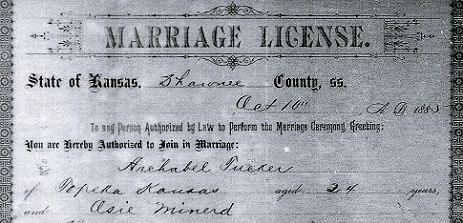 MARRIAGE LICENSE.
State of Kansas, Shawnee County, ss.
Oct 10th A. D. 1883
To any Person Authorized by Law to Perform the Marriage Ceremony, Greeting:
You are Hereby Authorized to Join in Marriage:
Archabel Tucker
of Topeka Kansas aged 24 years,
and Osie Minerd